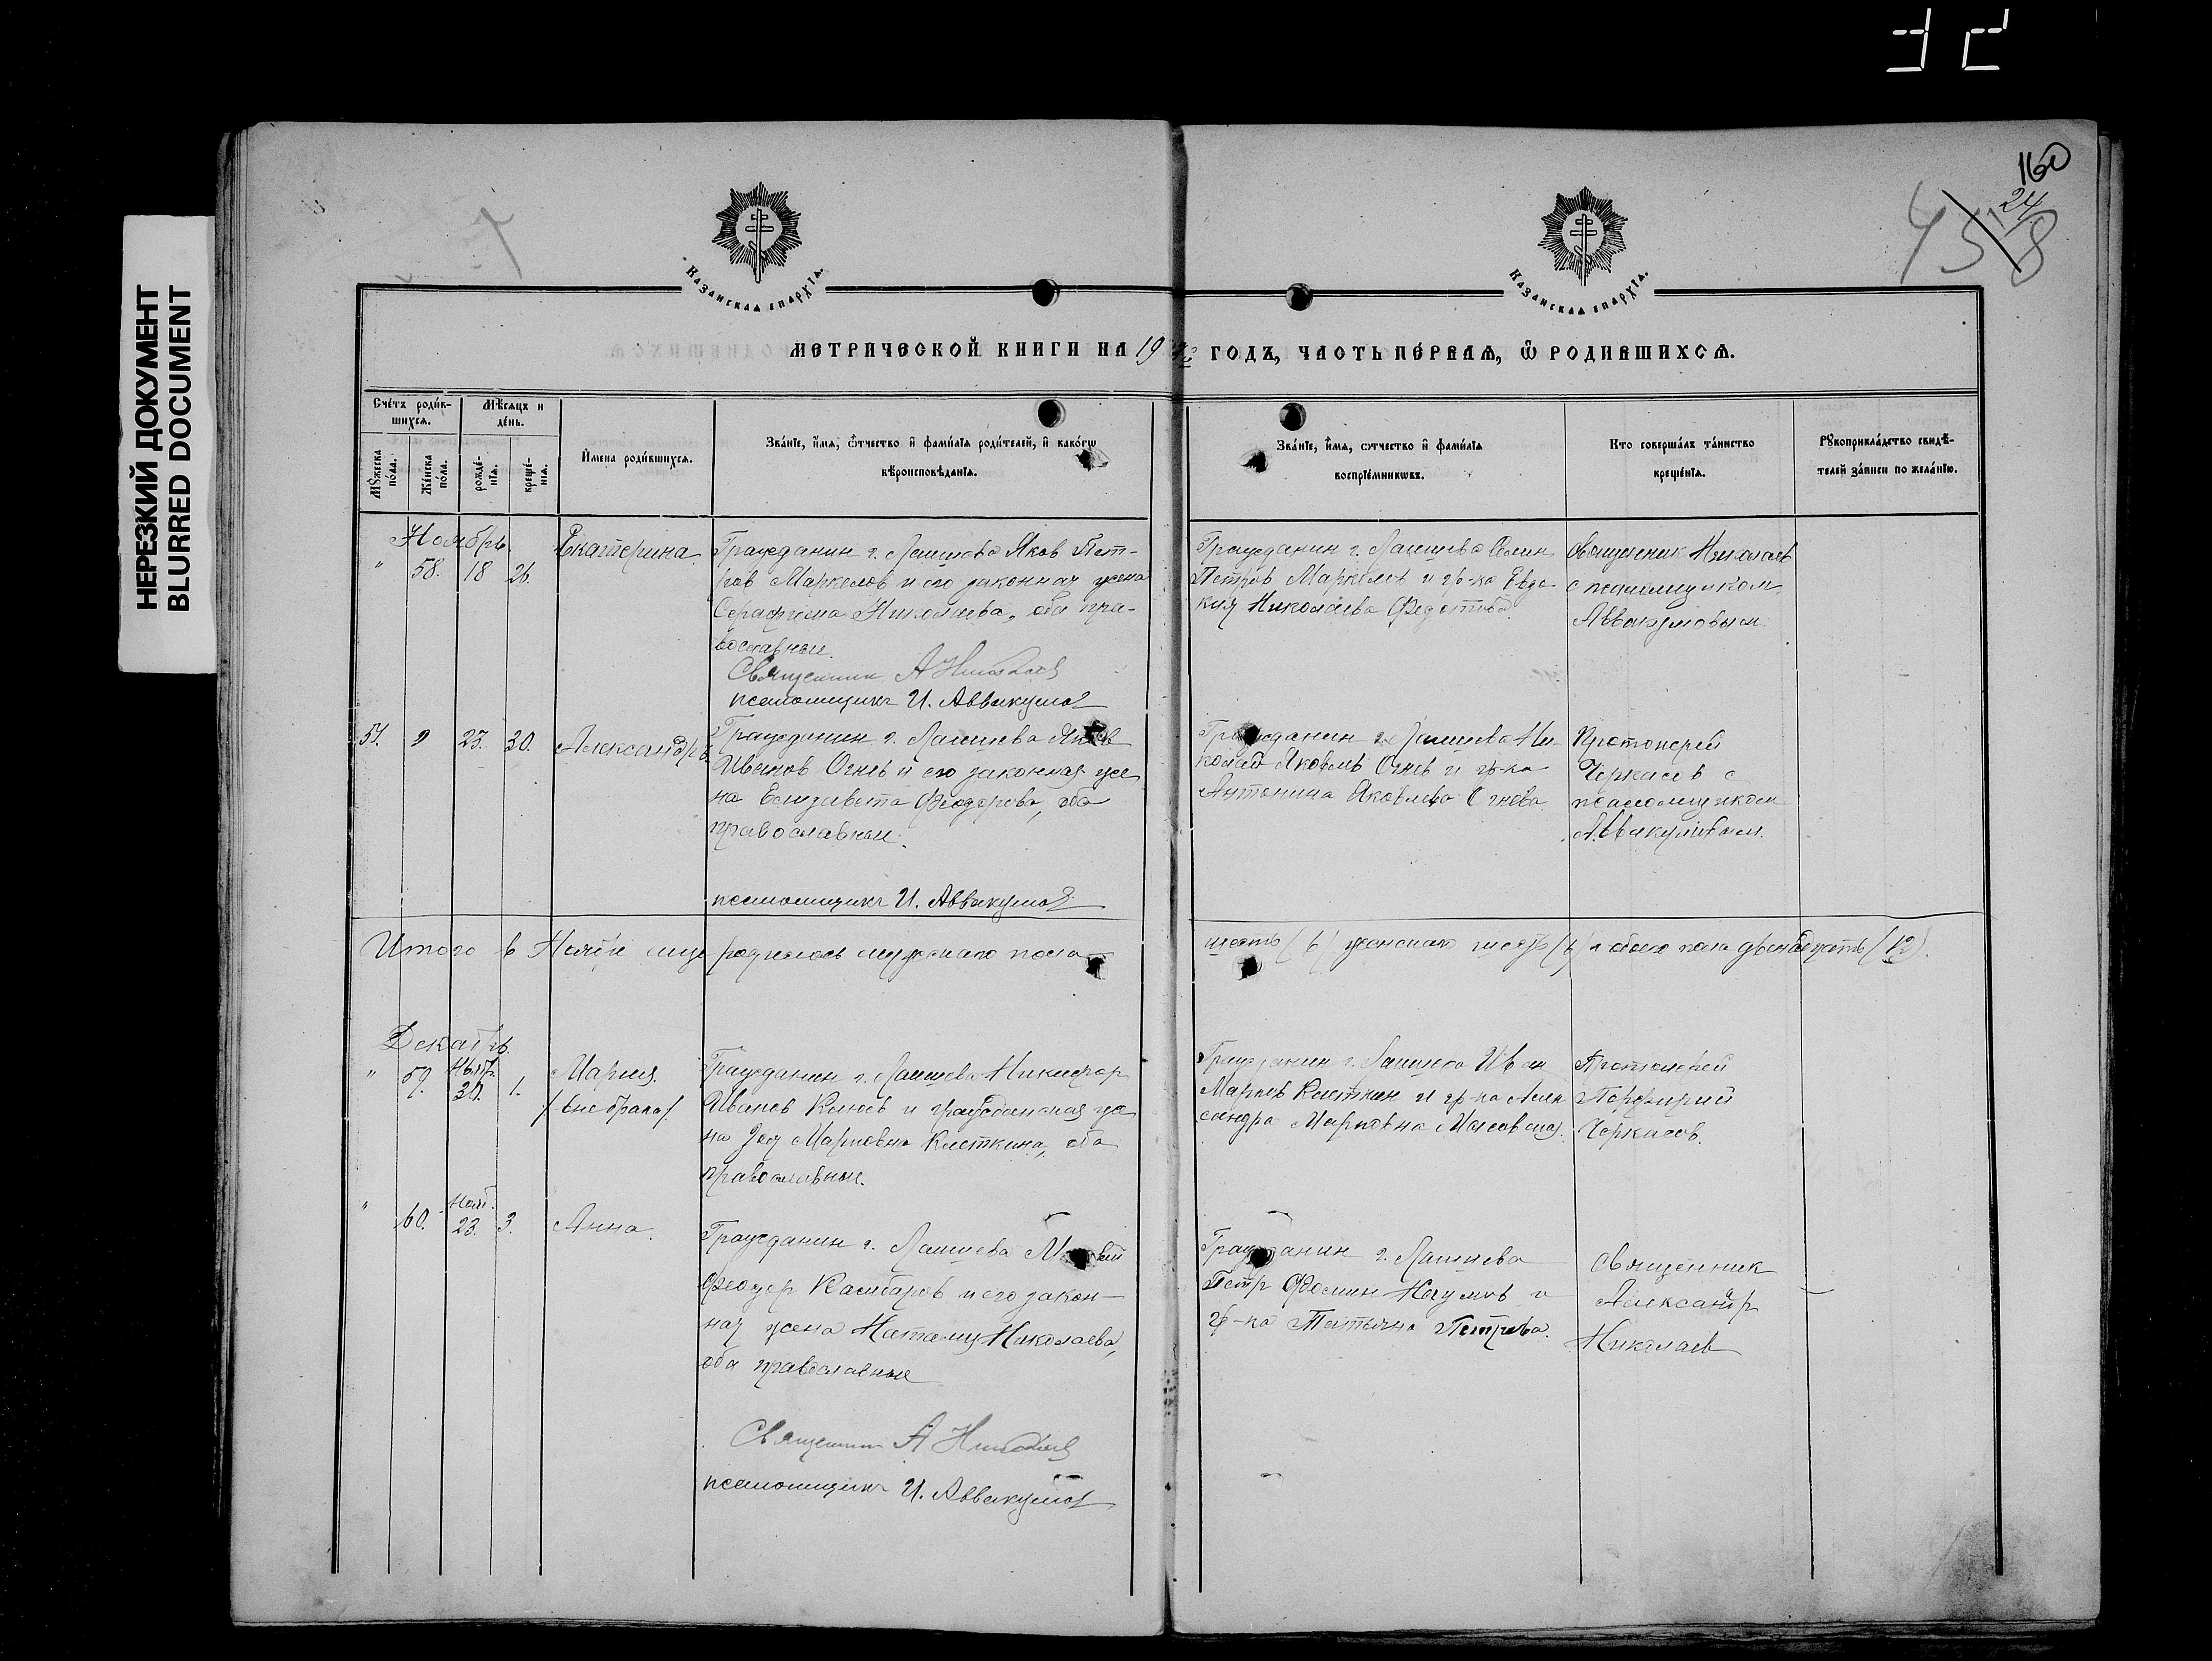 НЕРЕЗКИЙ ДОКУМЕНТ
BLURRED DOCUMENT
160
24
8
45
Казанская епархїѧ.
Казанская епархїѧ.
МЕТРИЧЕСКОЙ КНИГИ НА 19 ГОДЪ, ЧАСТЬ ПЕРВАЯ, Ѡ РОДИВШИХСЯ.
Счéтъ родив-
шихся.
Мѣсяцъ и
дéнь.
Мꙋжеска
пóла.
Жéнска
пóла.
рождé-
нїя.
крещé-
нїя.
Имена родившихся.
Звáнїе, имя, ѻтчество и фамилїя родителей, и какóгѡ
вѣроисповѣданїя.
Звáнїе, имя, ѻтчество и фамилїя
воспрїéмникѡвъ.
Кто совершáлъ тáинство
крещéнїя.
Рꙋкоприклáдство свидѣ-
телей зáписи по желáнїю.
Ноябрь
" 58. 18 26. Екатерина.
Гражданин г. Лаишева Яков Пет-
ров Маркелов и его законная жена
Серафима Николаева, оба пра-
вославные.
Священник А Николаев
псаломщикъ И. Аввакумов
Гражданин г. Лаишева
Петров Маркелов и гр-ка Евдо-
кия Николаева Федотова.
Священник Николаев
с псаломщиком
Аввакумовым.
54. " 23. 30. Александръ
Гражданин г. Лаишева Яков
Иванов Огнев и его законная же-
на Елизавета Феодорова, оба
православные.
псаломщикъ И. Аввакумов
Гражданин г. Лаишева Ни-
колай Яковлев Огнев и гр-ка
Антонина Яковлева Огнева.
Протоиерей
Черкасов с
псаломщиком
Аввакумовым.
Итого в родилось мужскаго пола шесть (6) женскаго шесть (6) и обоего пола двенадцать (12).
Декабрь.
" 59. 30. 1. Мария.
/вне брака/.
Гражданин г. Лаишева Никифор
Иванов Клюев и гражданская же-
на Зоя Марковна Клеткина, оба
православные.
Гражданин г. Лаишева Иван
Марков Клеткин и гр-ка Алек-
сандра Марковна
Протоиерей
Порфирий
Черкасов.
" 60. Нояб. 23. 3. Анна.
Гражданин г. Лаишева
Феодор Камбаров и его закон-
ная жена Наталия Николаева,
оба православные
Священник А Николаев
псаломщикъ И. Аввакумов
Гражданин г. Лаишева
Петр Фомин Наумов и
гр-ка Татьяна Петрова.
Священник
Александр
Николаев